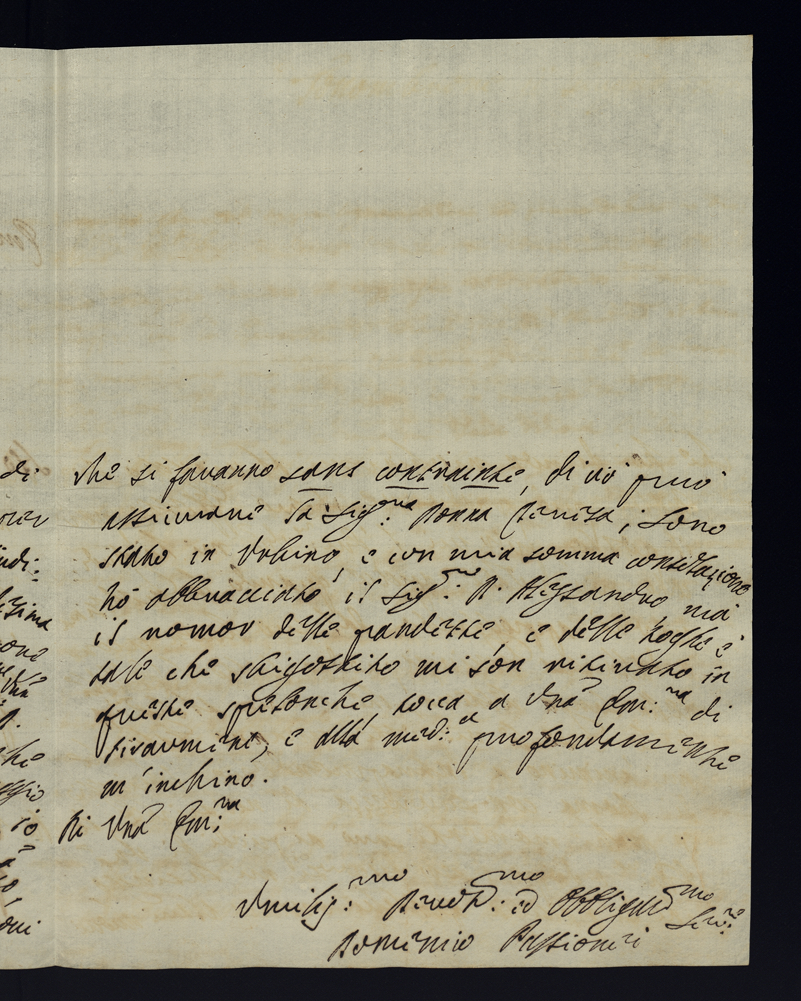 che si faranno sans contrainte, di ciò può
assicurare la Sig.ra Donna Teresa; sono
stato in Urbino, e con mia somma consolazione
hò abbracciato il Sig.re D. Alessandro mà
il romor delle pandette e delle toghe è
tale che sbigottito mi son ritirato in
queste spelonche tocca a Vra Em.za di
tirarmene, e alla med.a profondamente
m'inchino.
Di Vra Em.za
Umilis.mo Devot.mo ed Obbligat.mo Serv.re
Domenico Passionei